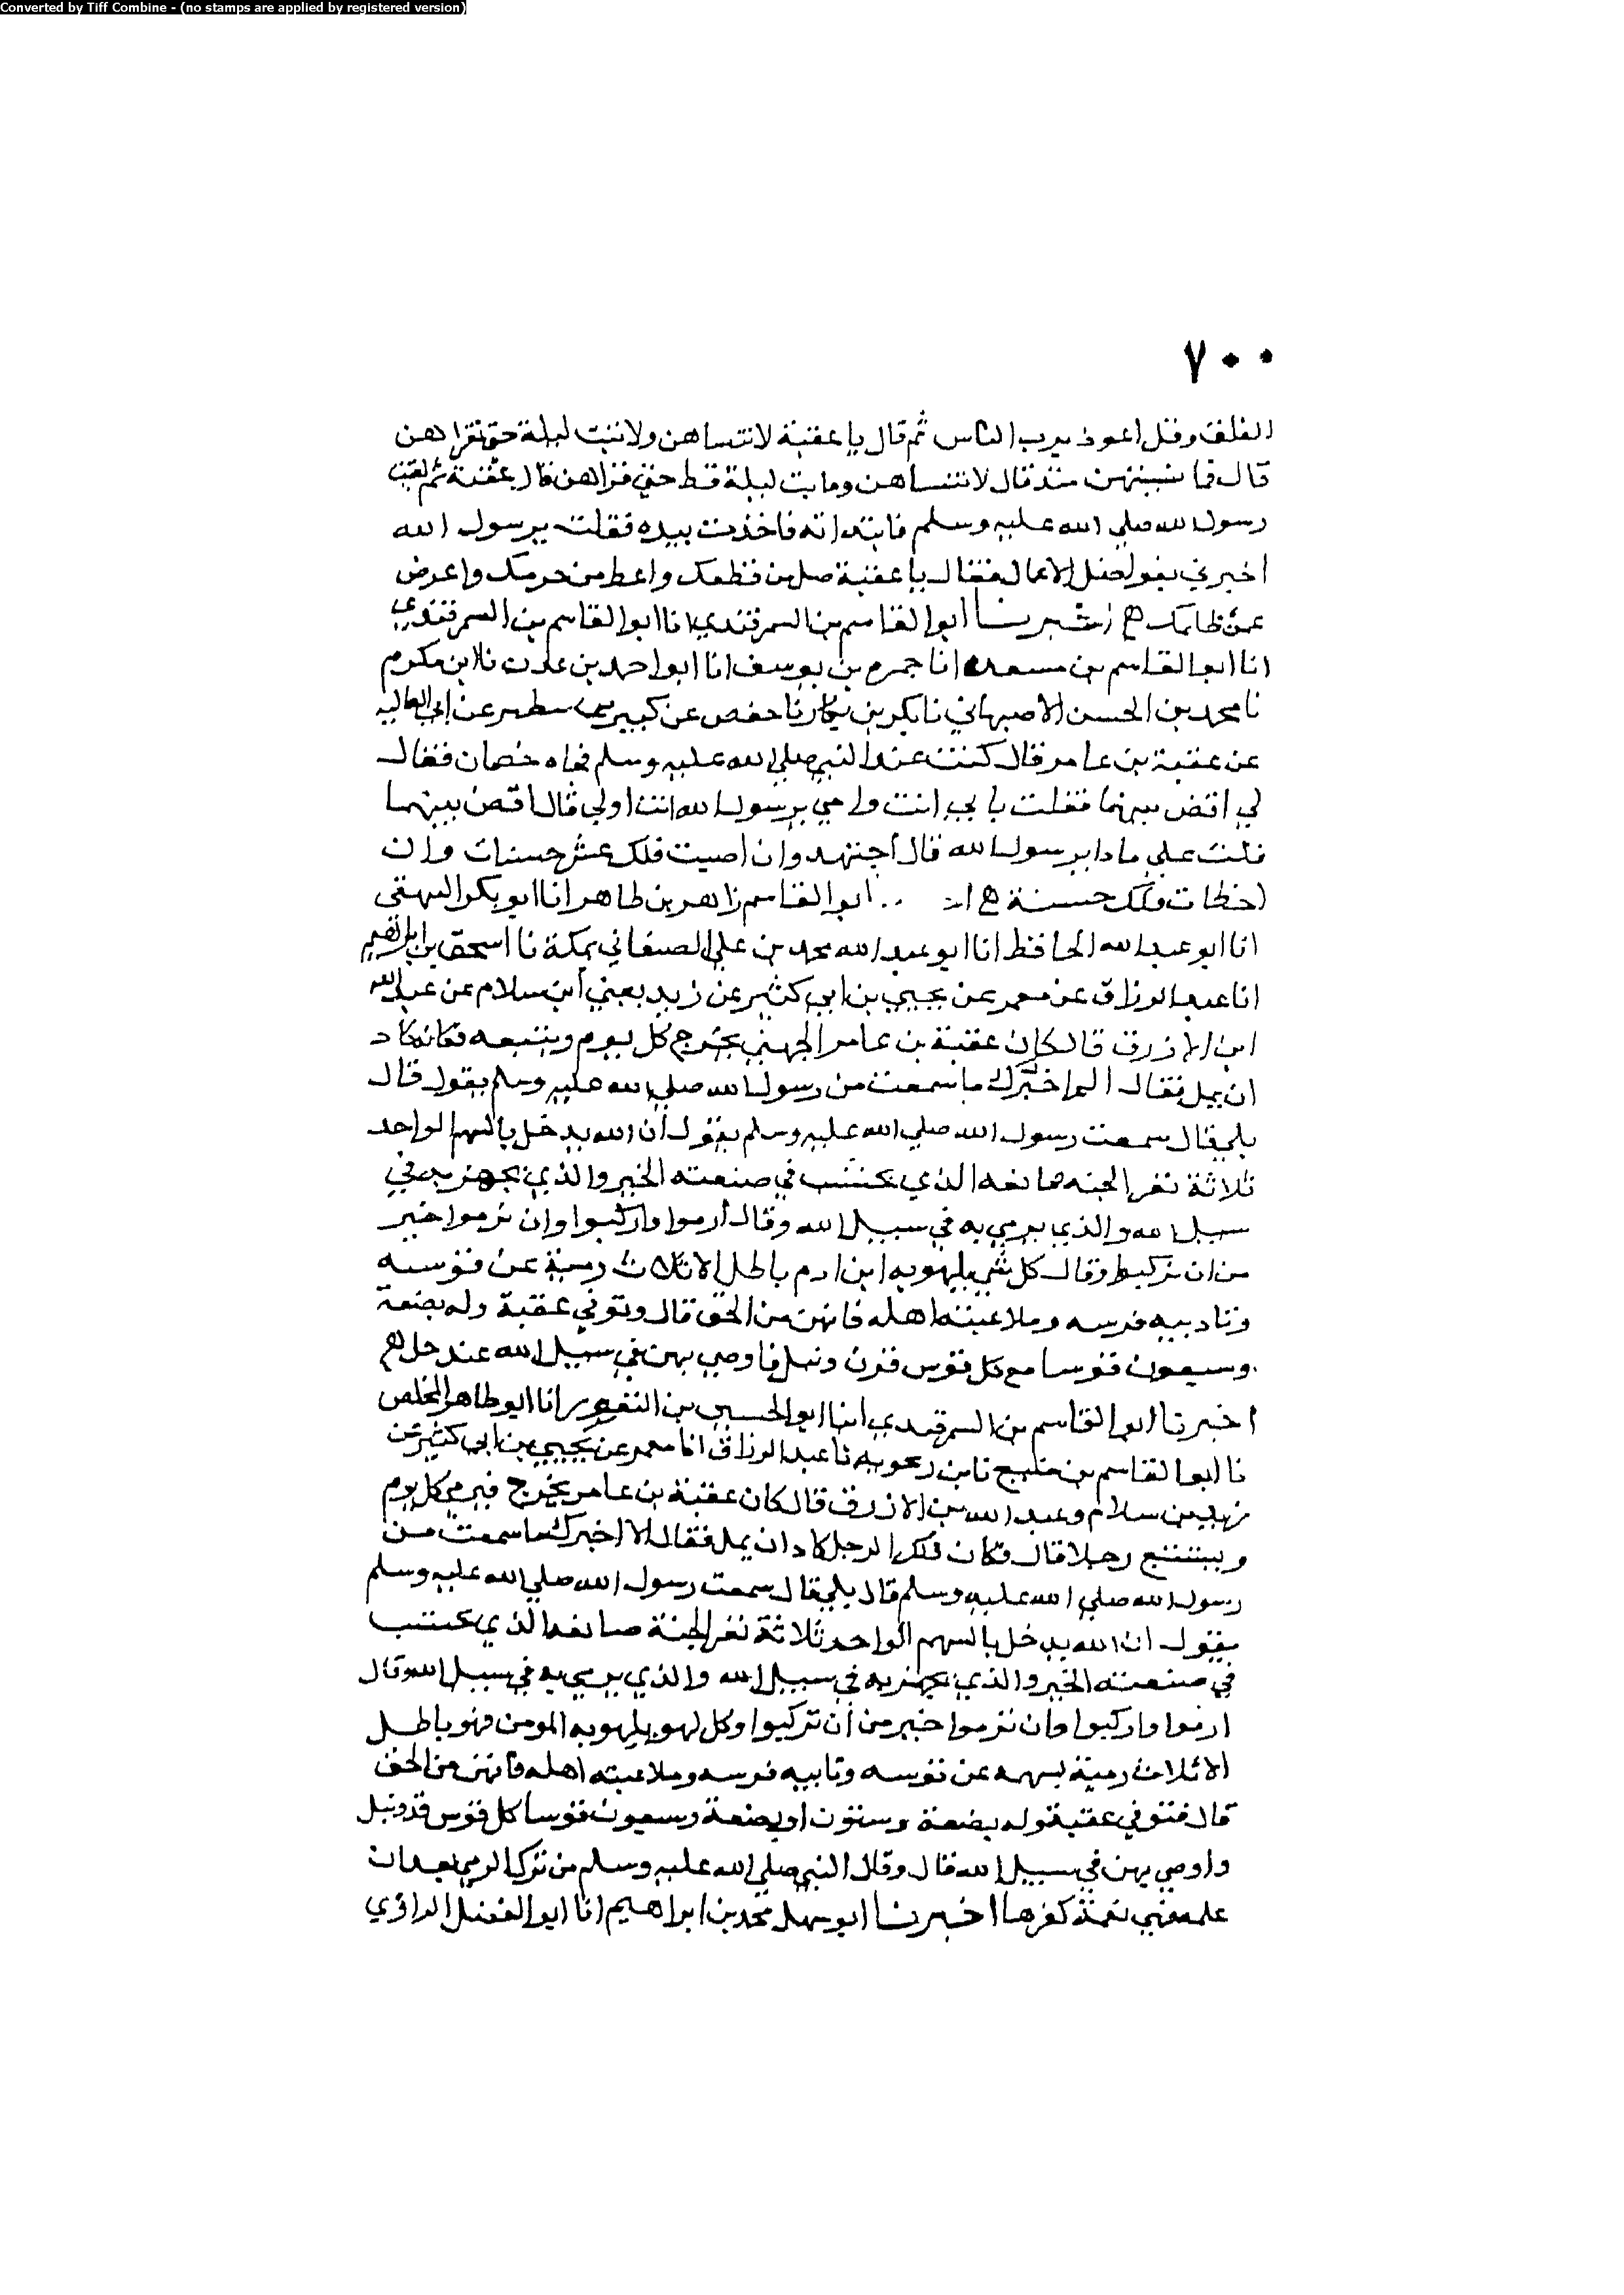 Converted by Tiff Combine - (no stamps are applied by registered version)
٧٠٠
الفلق وقل اعوذ برب الناس ثم قال يا عقبة لا تنساهن ولا تبت ليلة حتى تقراهن
قال فما نسيتهن منذ قال لا تنساهن وما بت ليلة قط حتى قراهن قال عقبة ثم لقيت
رسول الله صلى الله عليه وسلم فابتداته فاخذت بيده فقلت يرسول الله
اخبرني بفواضل الاعمال فقال يا عقبة صل من قطعك واعط من حرمك واعرض
عمن ظلمك ابو القاسم بن السمرقندي انا ابو القاسم بن السمرقندي
انا ابو القاسم بن مسعده انا حمزه بن يوسف انا ابو احمد بن عدي نا ابن مكرم
نا محمد بن الحسن الاصبهاني نا بكر بن بكار نا حفص عن كبير عن ابي العاليه
عن عقبة بن عامر قال كنت عند النبي صلى الله عليه وسلم فجاه خصمان فقال
لي اقض بينهما فقلت بابي انت وامي يرسول الله انت اولى قال اقض بينهما
قلت على ما ذا يرسول الله قال اجتهد وان اصبت فلك عشر حسنات وان
اخطات فلك حسنة ابو القاسم زاهر بن طاهر انا ابو بكر البيهقي
انا ابو عبد الله الحافظ انا ابو عبد الله محمد بن علي الصنعاني بمكة نا اسحق بن ابراهيم
انا عبد الرزاق عن معمر عن يحيي بن ابي كثير عن زيد يعني ابن سلام عن عبد الله
ابن الازرق قال كان عقبة بن عامر الجهني يخرج كل يوم ويتبعه فكانه كاد
ان يمل فقال الم اخبرك ما سمعت من رسول الله صلى الله عليه وسلم يقول قال
بلى قال سمعت رسول الله صلي الله عليه وسلم يقول ان الله يدخل بالسهم الواحد
ثلاثة نفر الجنه صانعه الذي يحتسب في صنعته الخير والذي يجهز به في
سبيل الله والذي يرمي به في سبيل الله وقال ارموا واركبوا وان ترموا خير
من ان تركبوا وقال كل شي يلهو به ابن ادم باطل الا ثلاث رمية عن قوسه
وتاديبه فرسه وملاعبته اهله فانهن من الحق قال وتوفي عقبة وله بضعة
وسبعون قوسا مع كل قوس قرن ونبل فاوصي بهن في سبيل الله
اخبرنا ابو القاسم بن السمرقندي انا ابو الحسين بن النقور انا ابو طاهر المخلص
نا ابو القاسم بن منيع نا بن زنجويه نا عبد الرزاق انا معمر عن يحيي بن ابي كثير عن
زيد بن سلام وعبد الله بن الازرق قال كان عقبة بن عامر يخرج فيرمي كل يوم
ويستتبع رجلا قال وكان ذلك الرجل كاد ان يمل فقال الا اخبرك ما سمعت من
رسول الله صلى الله عليه وسلم قال بلي قال سمعت رسول الله صلي الله عليه وسلم
يقول ان الله يدخل بالسهم الواحد ثلاثة نفر الجنة صانعه الذي يحتسب
في صنعته الخير والذي يجهز به في سبيل الله والذي يرمي به في سبيل الله وقال
ارموا واركبوا وان ترموا خير من ان تركبوا وكل لهو يلهو به المومن فهو باطل
الا ثلاث رمية بسهمه عن قوسه وتاديبه فرسه وملاعبته اهله فانهن من الحق
قال فتوفي عقبة وله بضعة وستون او بضعة وسبعون قوسا كل قوس قرن ونبل
واوصي بهن في سبيل الله قال وقال النبي صلى الله عليه وسلم من ترك الرمي بعد ان
علمه فهي نعمة كفرها اخبرنا ابو سهل محمد بن ابراهيم انا ابو الفضل الرازي